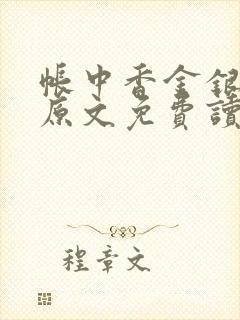 帳中香金銀
原文免費讀
程章文